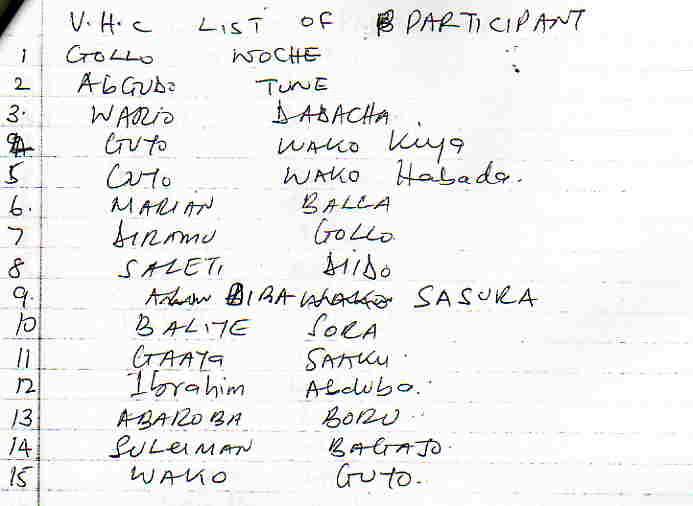 V.H.C LIST OF PARTICIPANT
1 GOLLO WOCHE
2 ABGUDO TUNE
3. WARIO DABACHA
4 GUYO WAKO Kiya
5 GUYO WAKO Habada.
6. MARIAN BALLA
7 DIRAMU GOLLO
8 SALETI DIIDO
9. DIBA SASURA
10 BALIYE SORA
11 GAAYA SAAKU
12 Ibrahim Abduba.
13 ABAROBA BORU
14 SULEIMAN BAGAJO.
15 WAKO GUYO.